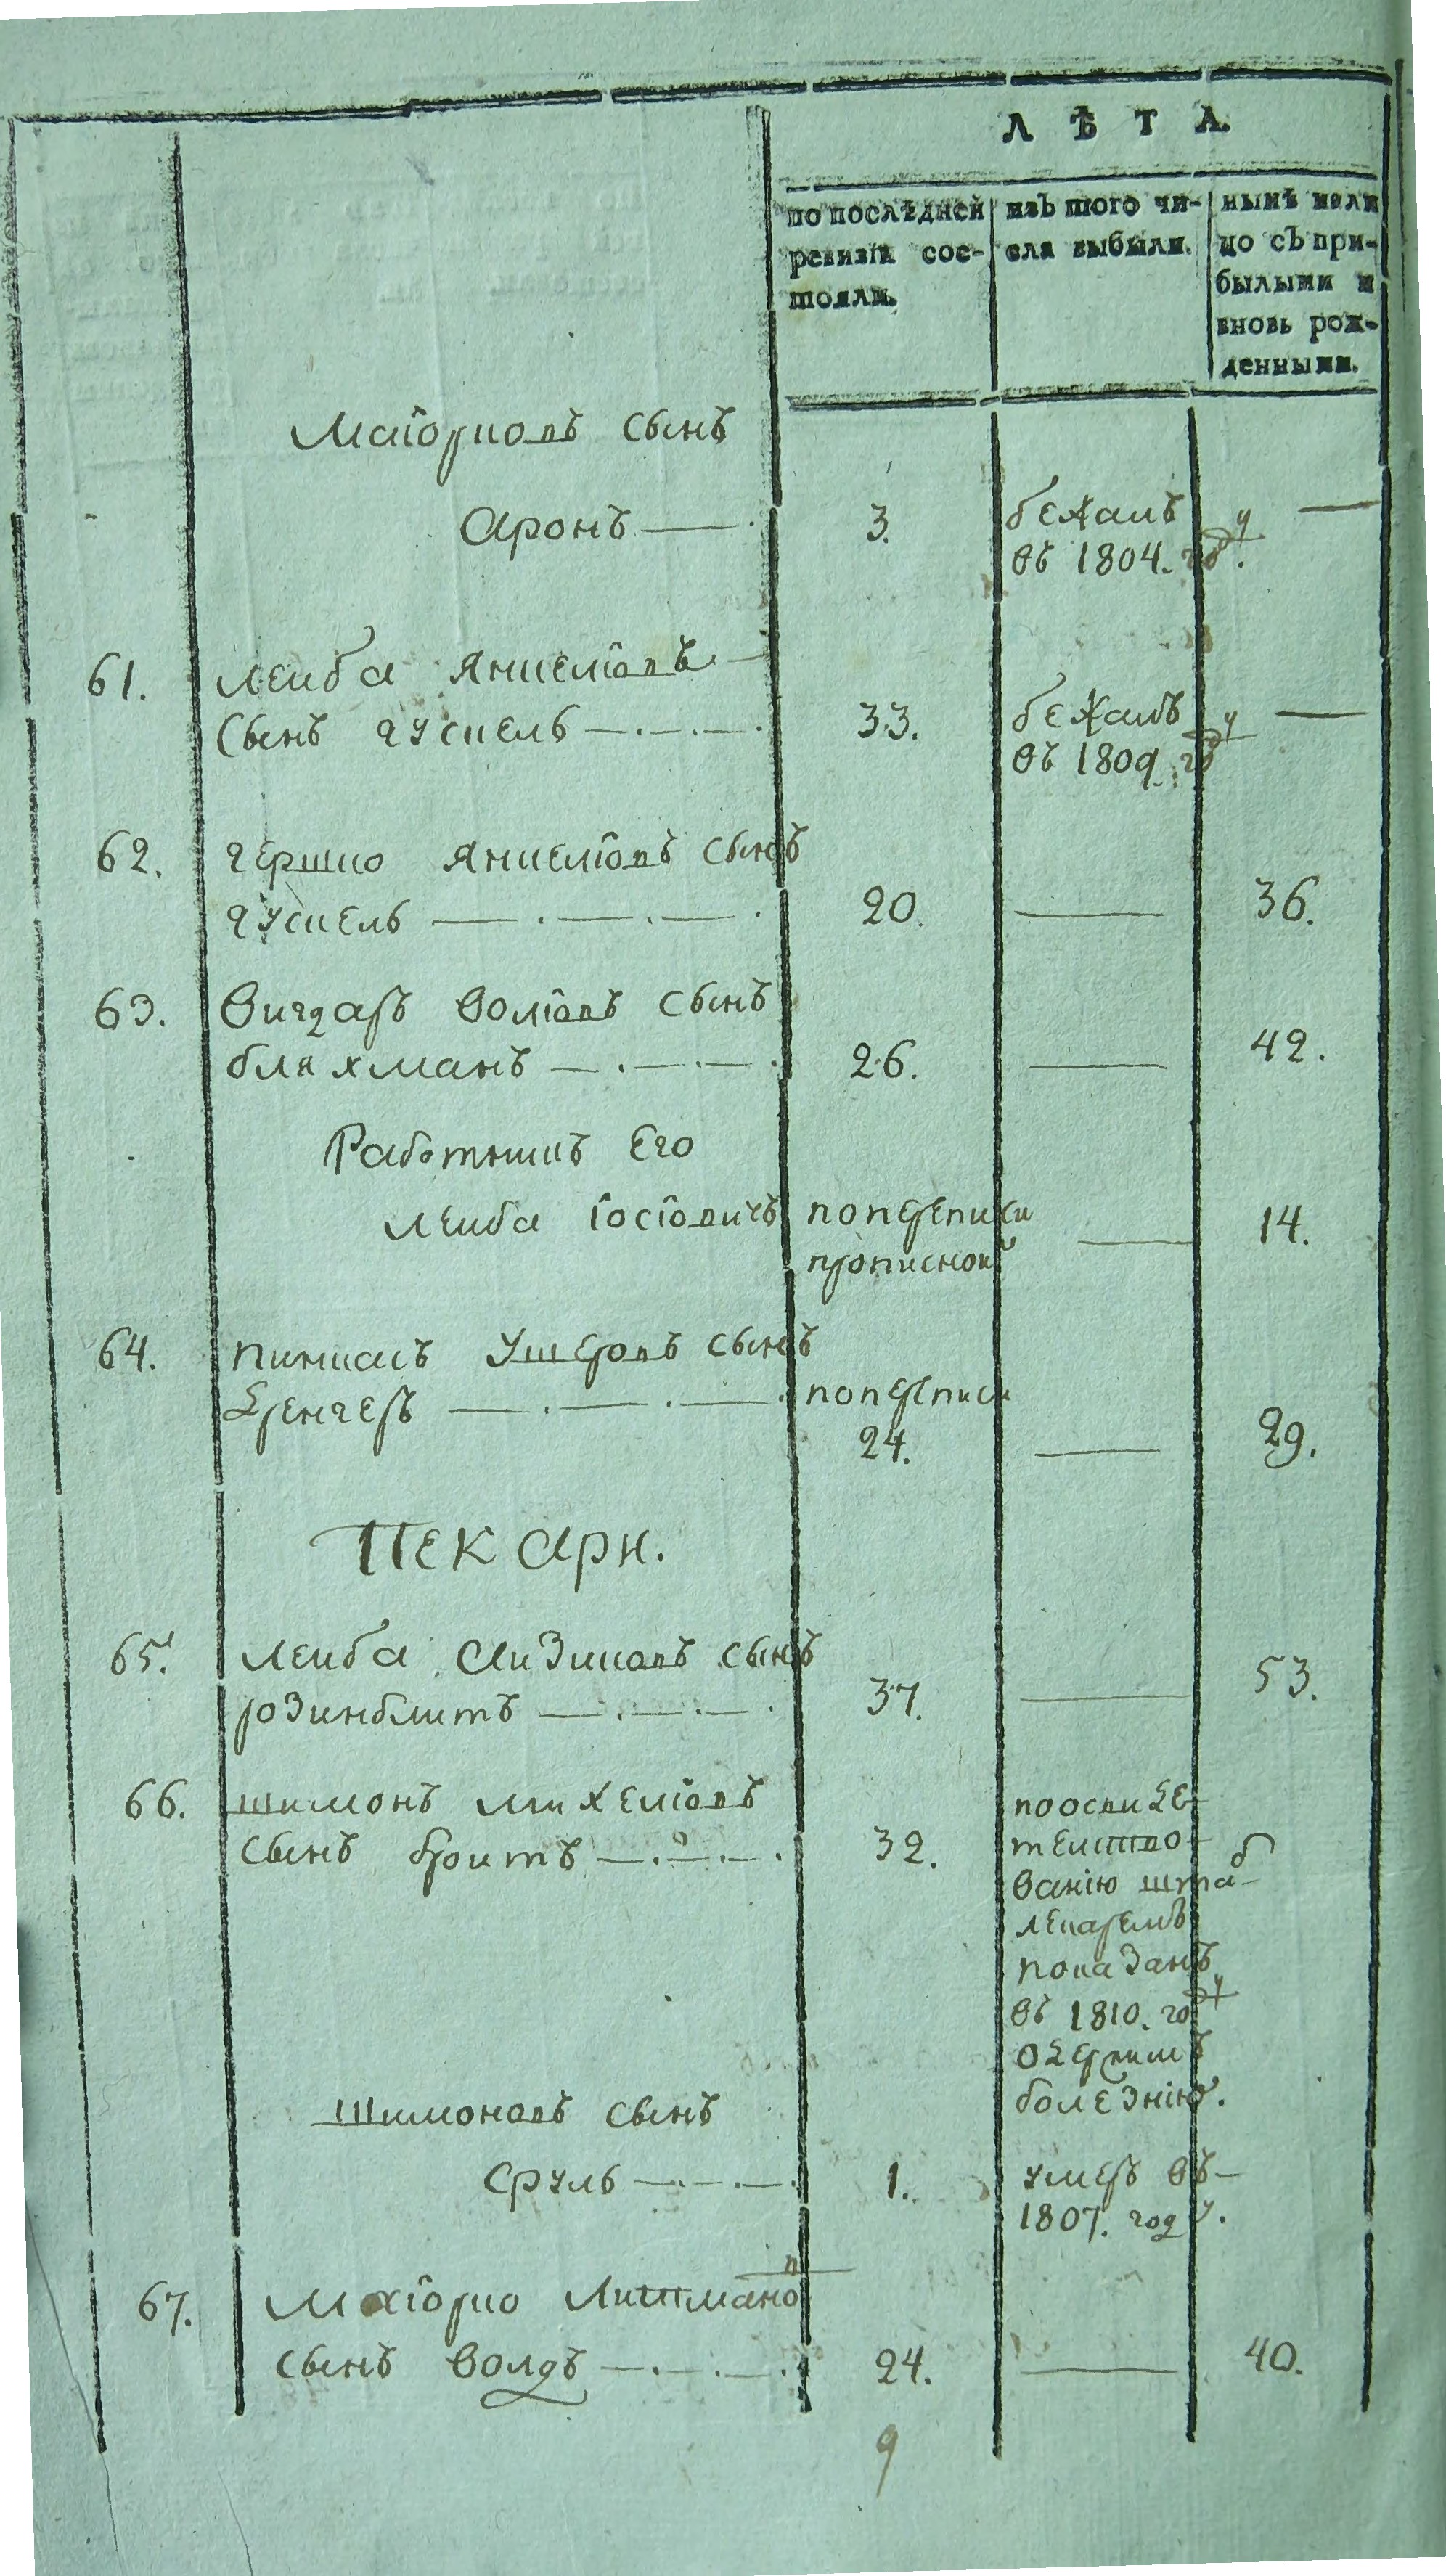 ЛѢТА.
по послѣдней ревизіи состояли.
изъ того числа выбыли.
нынѣ на лицо съ прибылыми и вновь рожденными.
Маіорковъ сынъ
Аронъ — 3. бежалъ
въ 1804. году. —
61. Лейба Янкеліовъ —
сынъ гускель — 33. бежалъ —
въ 1809 году
62. гершко Янкеліовъ сынъ
гускель — 20. — 36.
63. Вигдаръ Воліовъ сынъ
бляхманъ — 26. — 42.
Работникъ Его
Лейба Іосіовичъ попереписи — 14.
прописной
64. пинкасъ Ушеровъ сынъ
Дренгеръ — попереписи
24. — 29.
ПЕКАРИ.
65. Лейба Айзиковъ сынъ
розинблитъ — 37. — 53.
66. шимонъ михеліовъ
сынъ броитъ — 32.
поосвиде-
тельство-
ванію штаб-
лекаремъ
показанъ
въ 1810. году
одержимъ
болезнію.
Шимоновъ сынъ
Сруль — 1. умеръ въ-
1807. году.
67. Маіорко Литмановъ
сынъ Волдъ — 24. — 40.
9